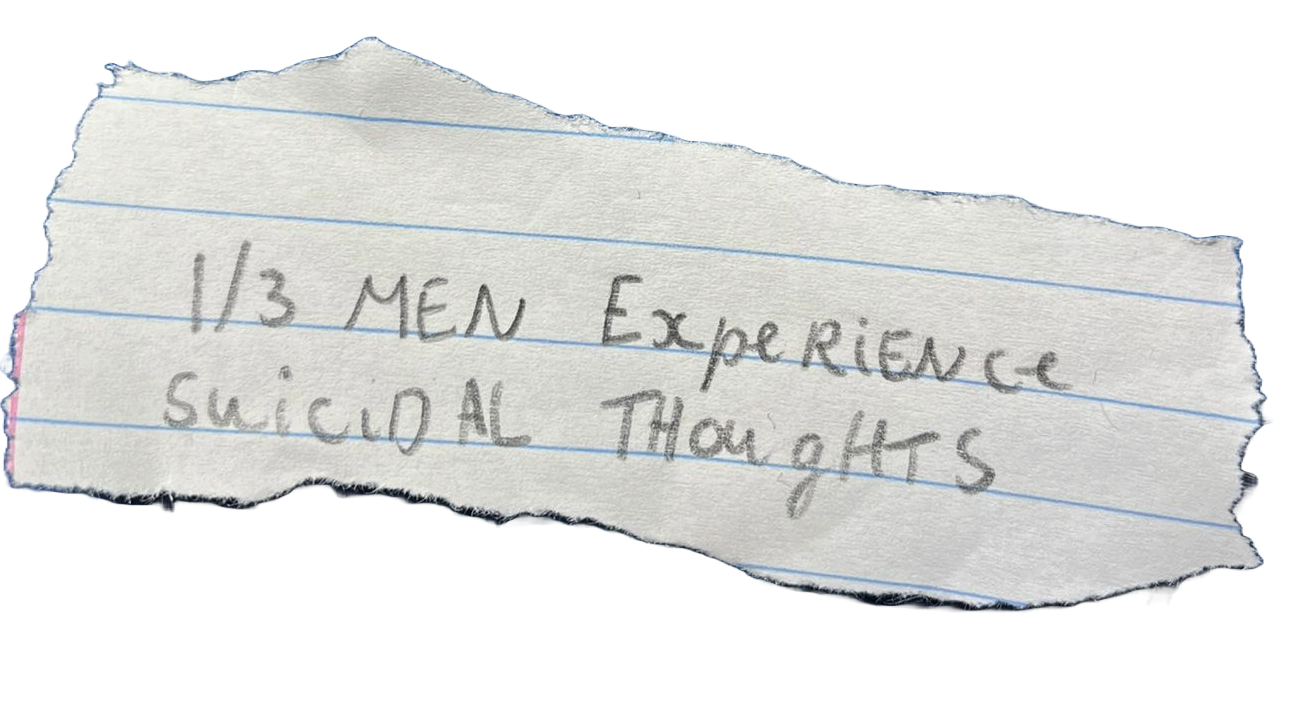 1/3 MEN ExpeRiENce
SuiciDAL THougHTS